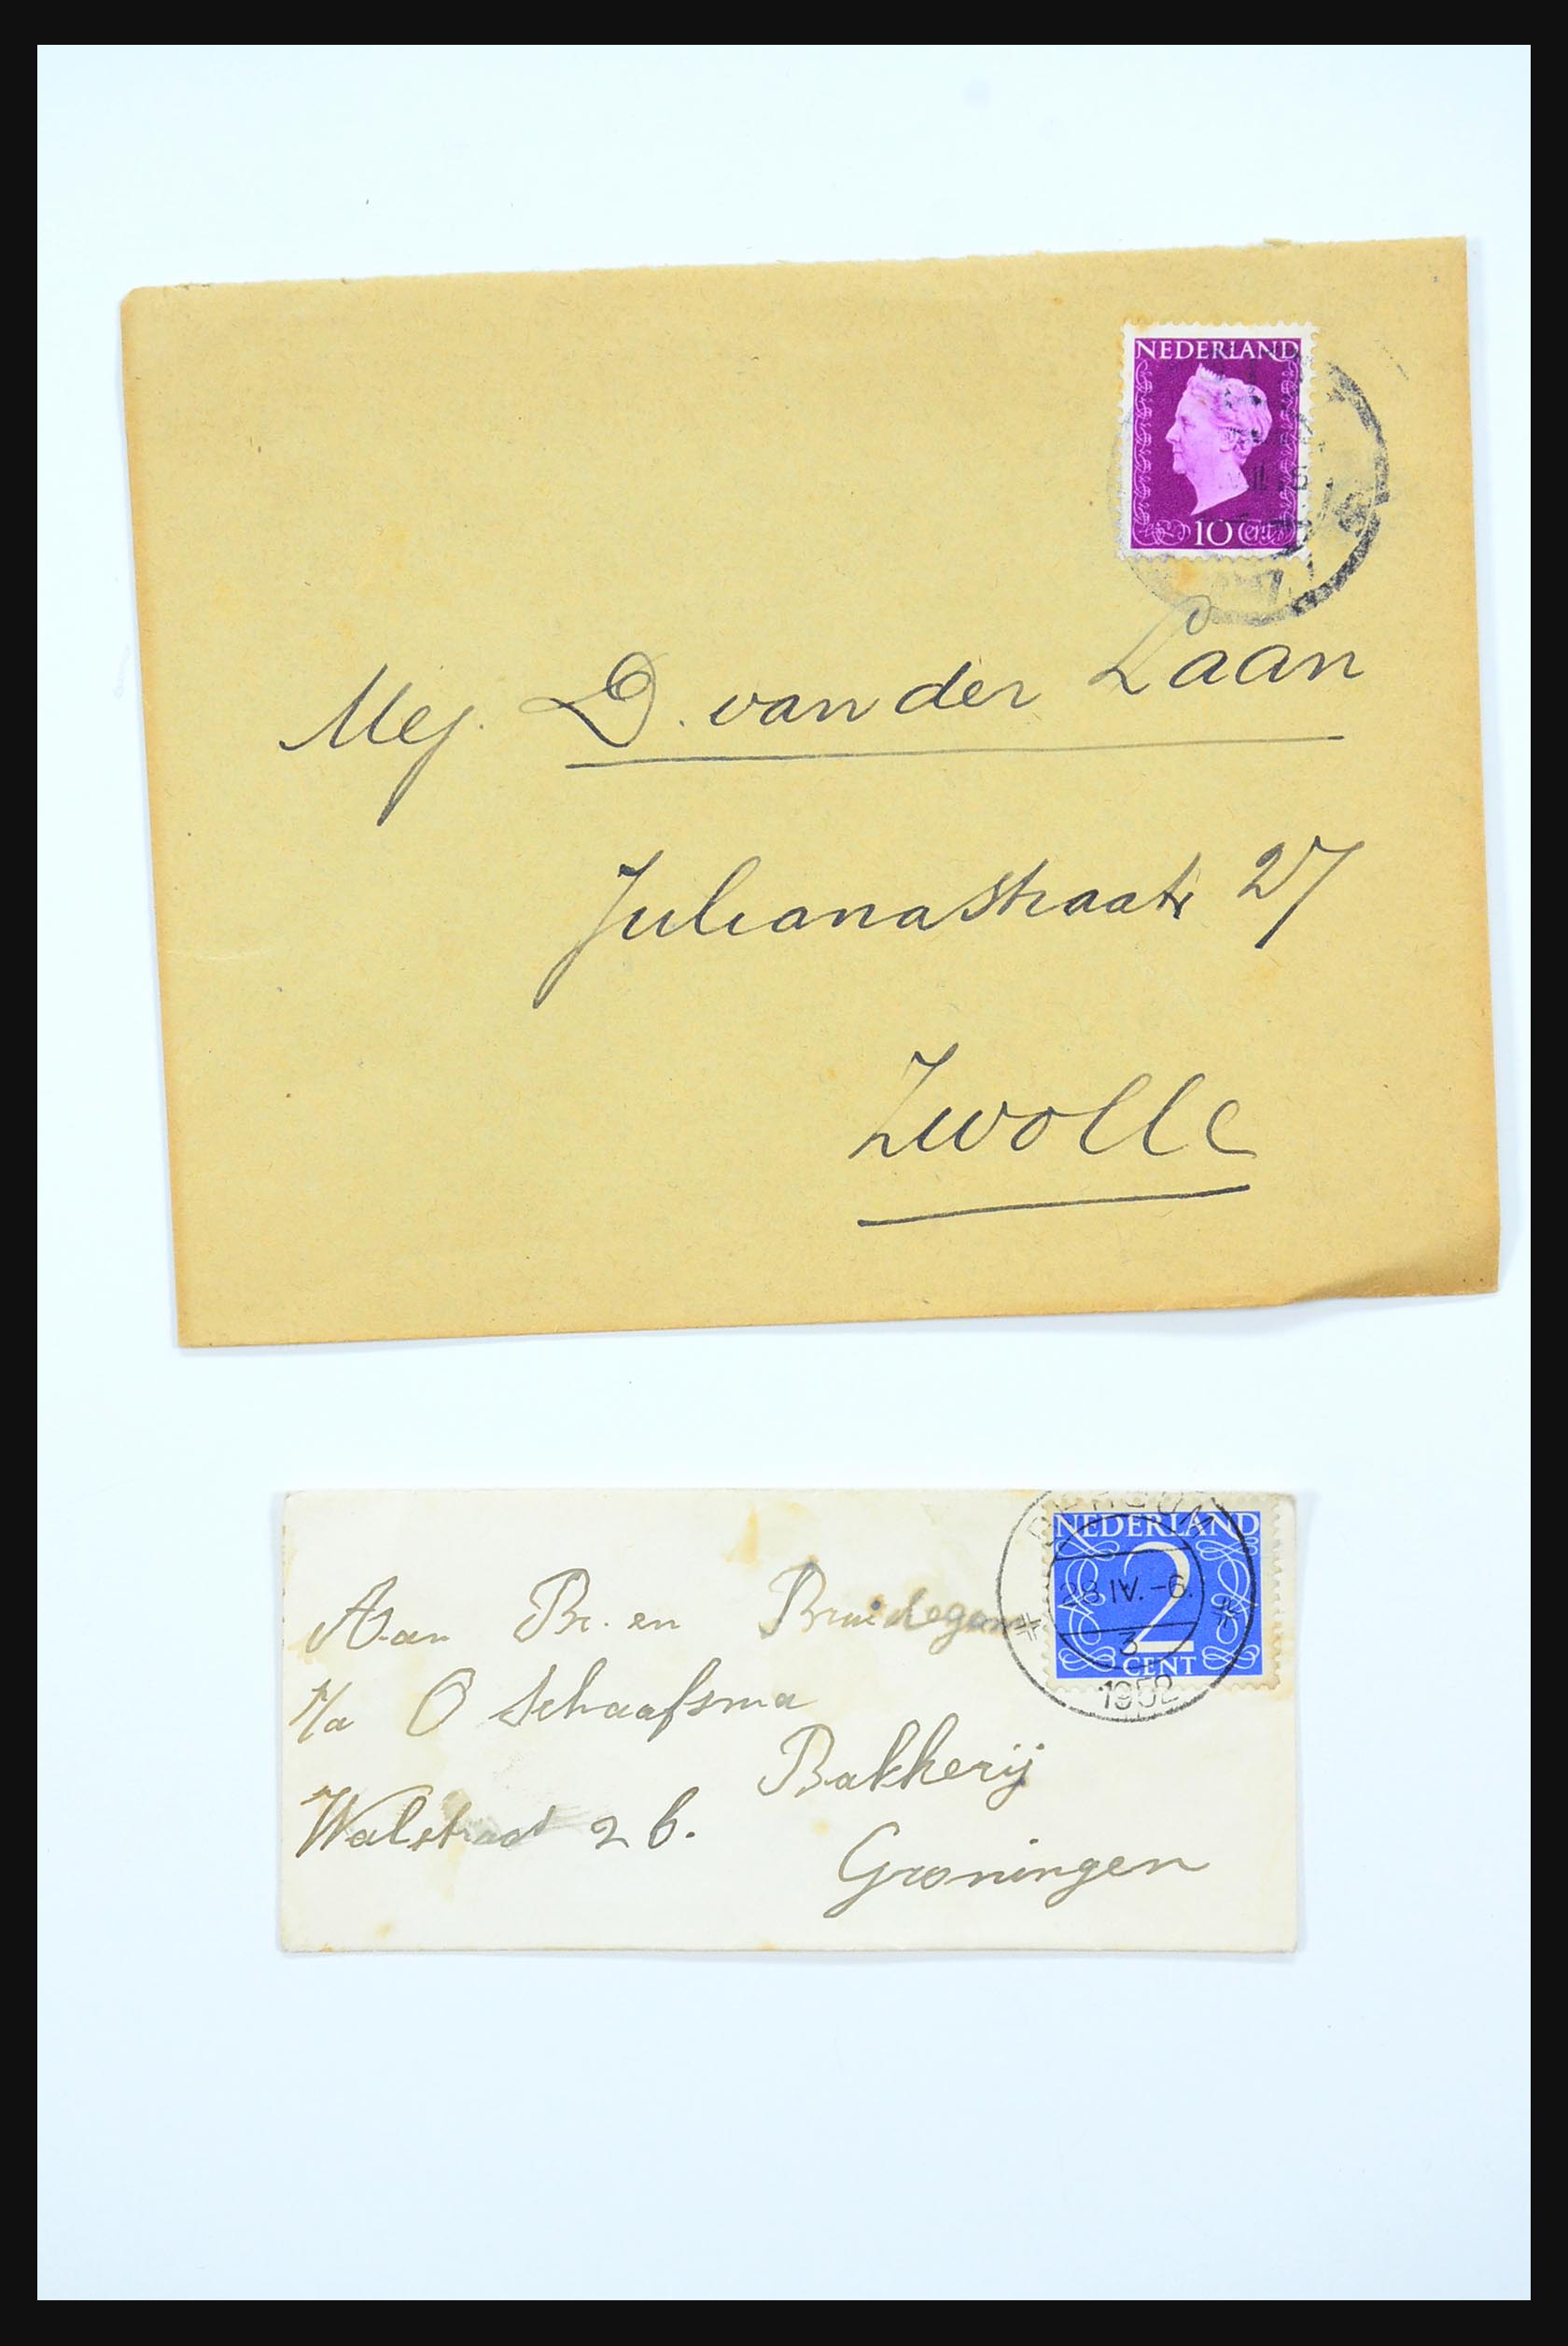 NEDERLAND
10 Cent
Mej. D. van der Laan
Julianastraat 27
Zwolle
BERGUM
NEDERLAND
2
28.IV.-6.
3
CENT
1952
Aan Br. en Bruidegom
P/a O Schaafsma
Bakkerij
Walstraat 26.
Groningen